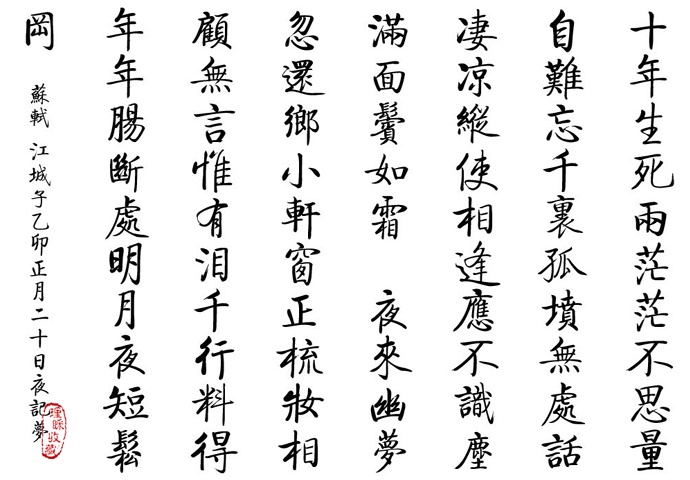 十年生死兩茫茫不思量
自難忘千裏孤墳無處話
淒涼縱使相逢應不識塵
滿面鬢如霜 夜來幽夢
忽還鄉小軒窗正梳妝相
顧無言惟有淚千行料得
年年腸斷處明月夜短鬆
岡
蘇軾 江城子乙卯正月二十日夜記夢